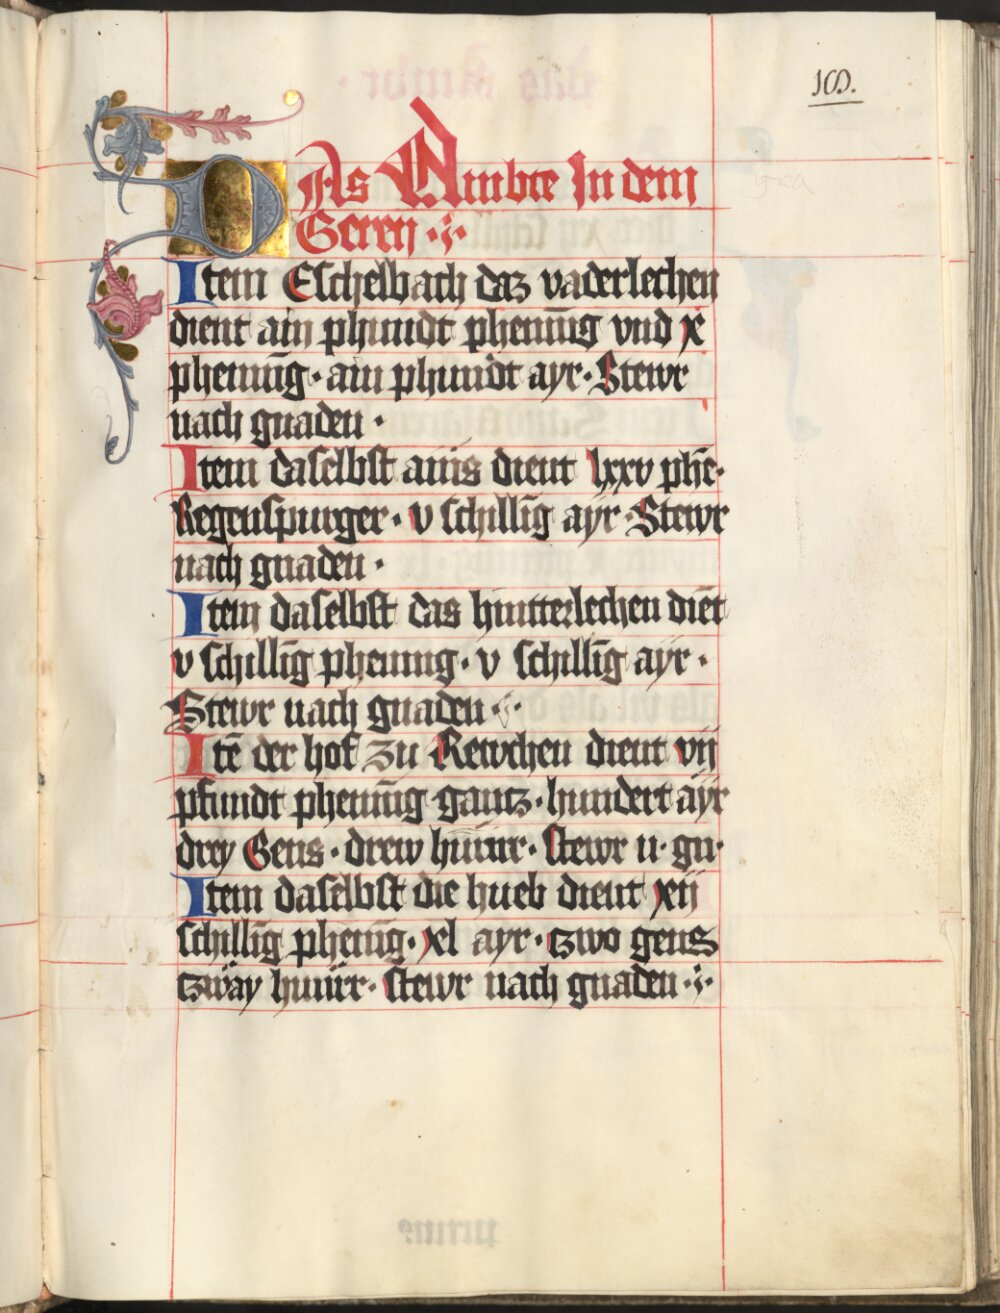 169.
DAs Ambte In dem
Geren ·:·
Item Eschelbach daz vaderlechen
dient ain phundt phening vnd x
phening · ain phundt ayr · Stewr
nach gnaden ·
Item daselbst ains dient lxxv phē·
Regenspurger · v schilling ayr · Stewr
nach gnaden ·
Item daselbst das hintterlechen diēt
v schillīg phening · v schillīg ayr ·
Stewr nach gnaden ·:·
Itē der hof zu Rewchen dient vij
pfundt phenīng gantz · hundert ayr
drey Gens · drew hünr · stewr n· gn·
Item daselbst die hueb dient xij
schillīg phenīg · xl ayr · tzwo gens
tzway hünr · stewr nach gnaden ·:·